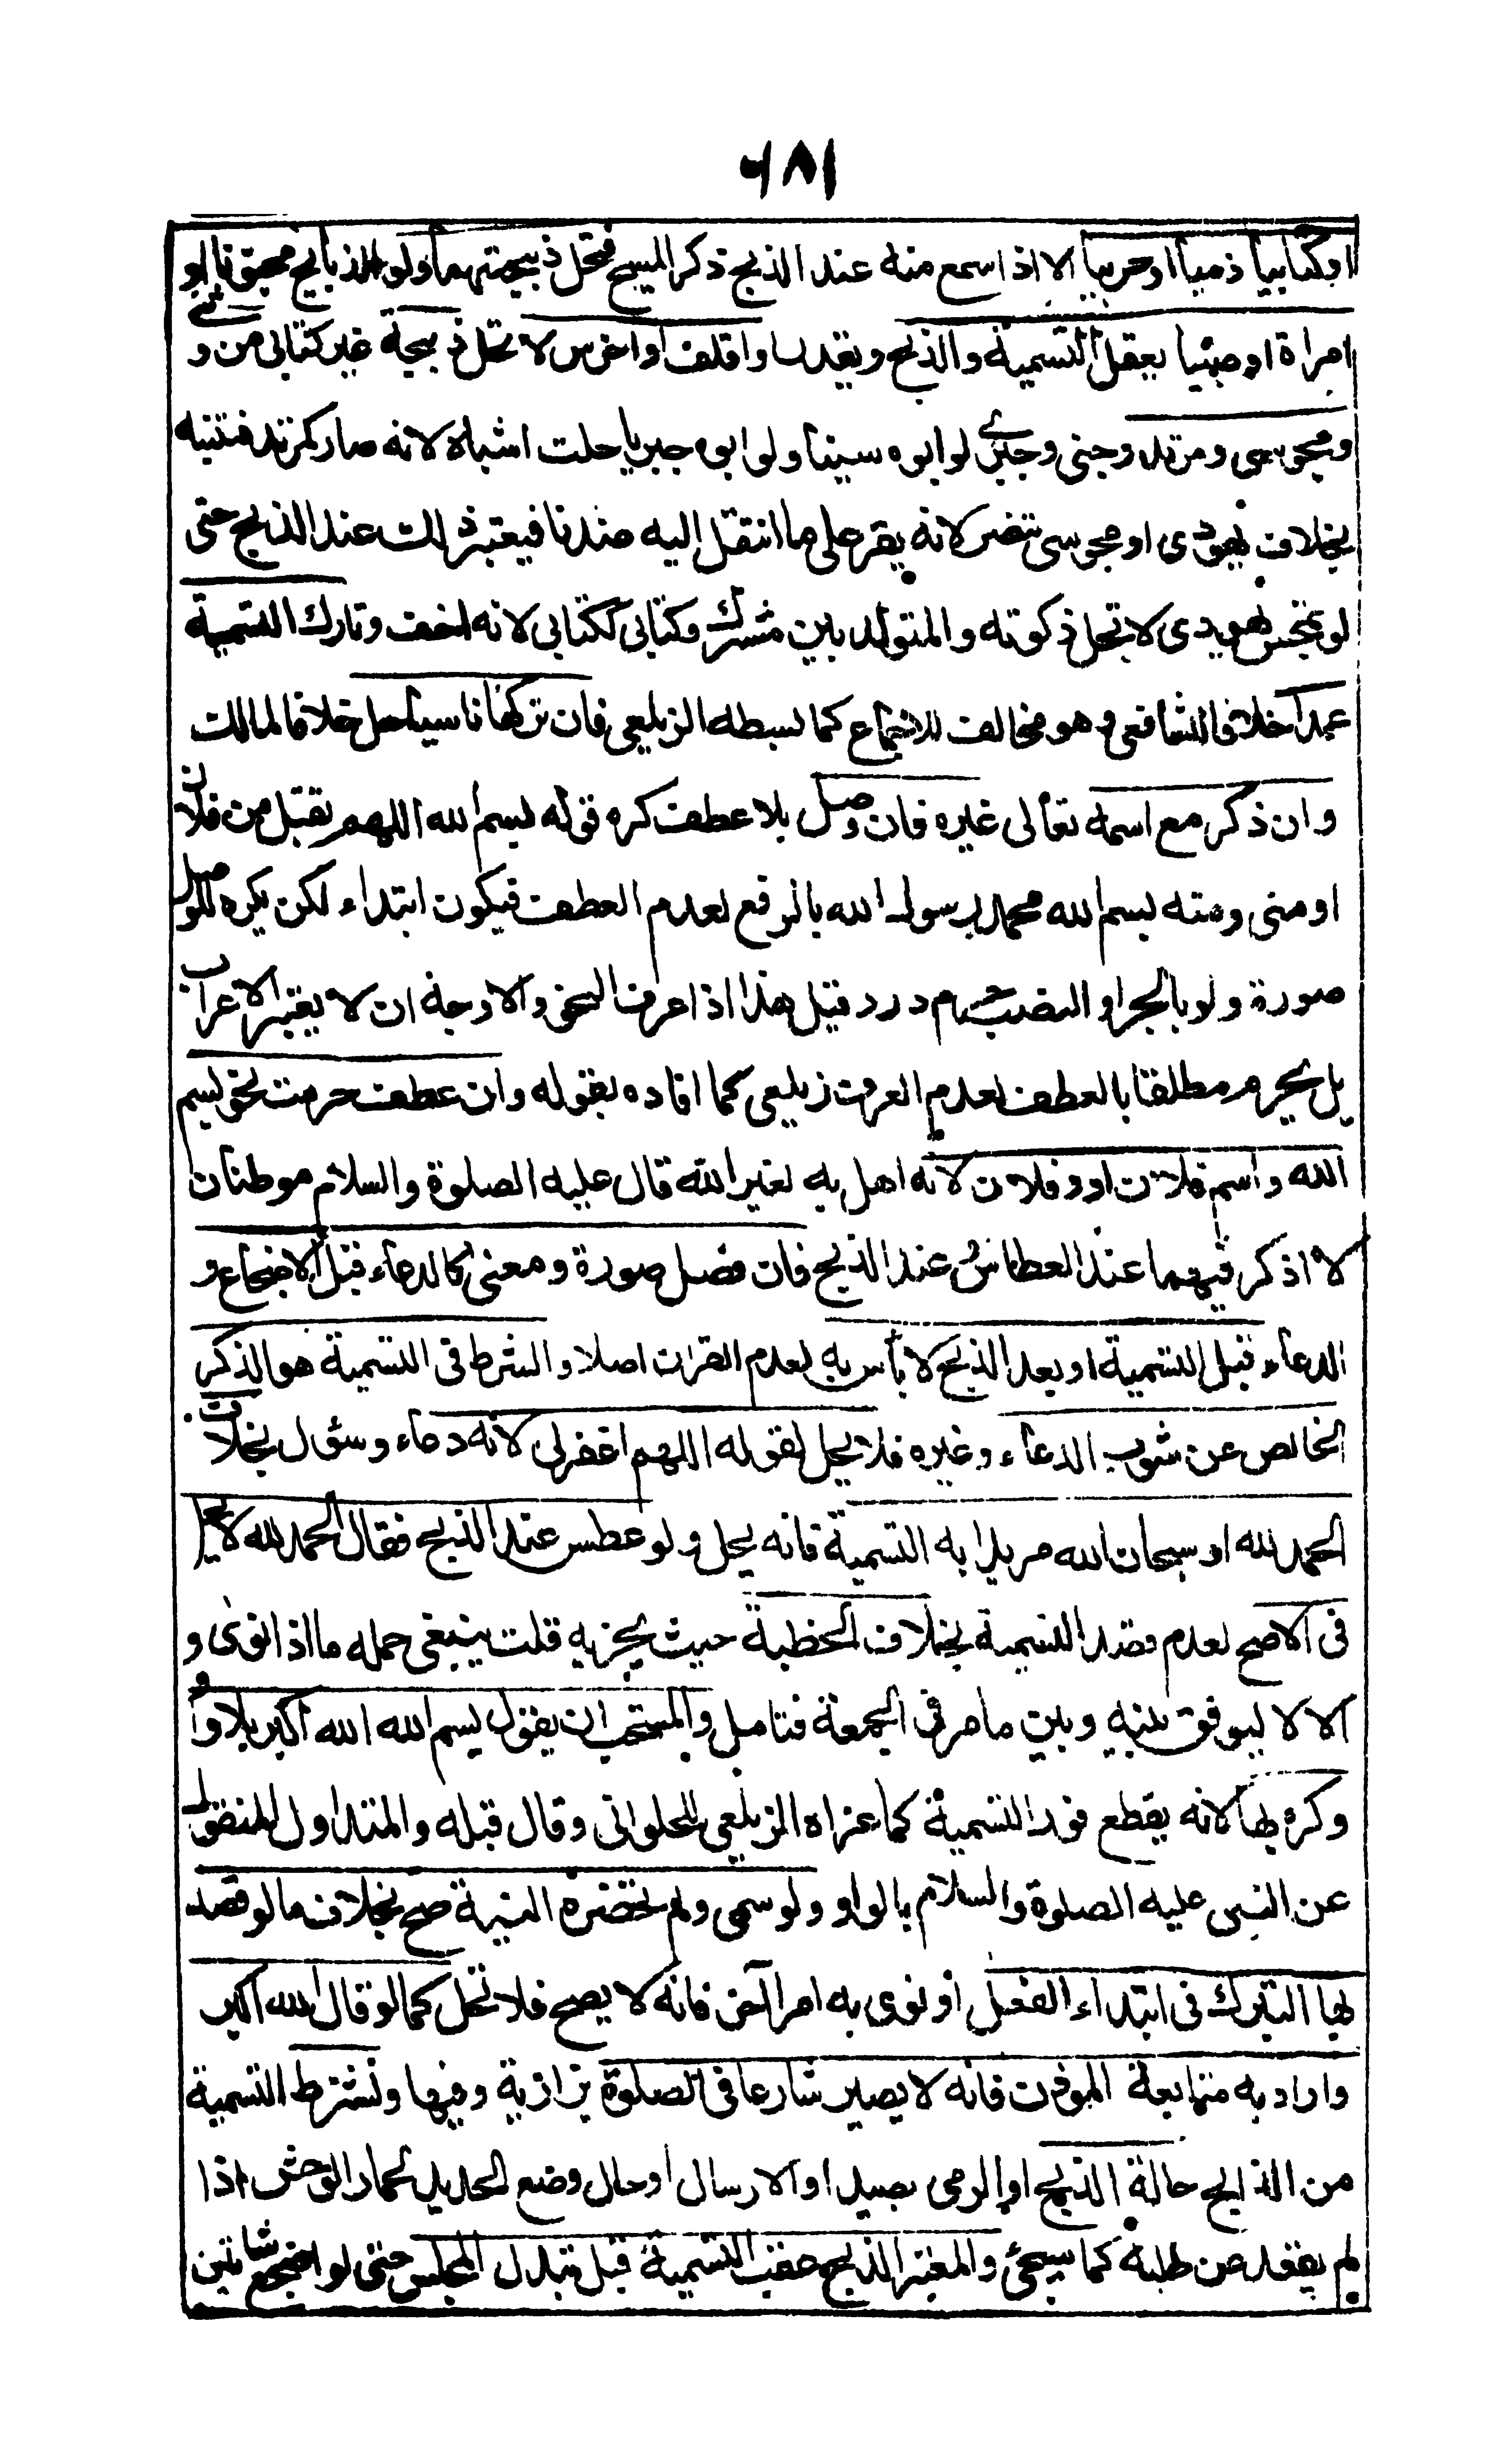 ٦٨١
او كتابيا ذميا او حربيا الا اذا سمع منه عند الذبح ذكر المسيح فتحل ذبيحتهما ولو الذابح مجنونا او
امراة او صبيا يعقل التسمية والذبح ويقدر او اقلف او اخرس لا تحل ذبيحة غير كتابى من وثنى
ومجوسى ومرتد وجنى وجبرى لو ابوه سنيا ولو ابوه جبريا حلت اشباه لانه صار كمرتد قنيه
بخلاف يهودى او مجوسى تنصر لانه يقر على ما انتقل اليه عندنا فيعتبر ذلك عند الذبح حتى
لو تمجس يهودى لا تحل ذكوته والمتولد بين مشرك وكتابى ككتابى لانه اخف وتارك التسمية
عمدا خلافا للشافعى وهو مخالف للاجماع كما بسطه الزيلعى فان تركها ناسيا حل خلافا لمالك
وان ذكر مع اسمه تعالى غيره فان وصل بلا عطف كره قوله بسم الله اللهم تقبل من فلان
او منى ومنه بسم الله محمد رسول الله بالرفع لعدم العطف فيكون ابتداء لكن يكره للوصل
صورة ولو بالجر او النصب حرم درر قيل هذا اذا عرف النحو والاوجه ان لا يعتبر الاعراب
بل يحرم مطلقا بالعطف لعدم العرف زيلعى كما افاده بقوله وان عطف حرمت نحو بسم
الله واسم فلان او وفلان لانه اهل به لغير الله قال عليه الصلوة والسلام موطنان
لا اذكر فيهما عند العطاس وعند الذبح فان فصل صورة ومعنى كالدعاء قبل الاضجاع و
الدعاء قبل التسمية او بعد الذبح لا بأس به لعدم القران اصلا والشرط فى التسمية هو الذكر
الخالص عن شوب الدعاء وغيره فلا يحل بقوله اللهم اغفر لى لانه دعاء وسؤل بخلاف
الحمد لله او سبحان الله مريدا به التسمية فانه يحل ولو عطس عند الذبح فقال الحمد لله لا يحل
فى الاصح لعدم قصد التسمية بخلاف الخطبة حيث يجزيه قلت ينبغى حمله ما اذا نوى و
الا لا ليوفق بينه وبين ما مر فى الجمعة فتامل والمستحب ان يقول بسم الله الله اكبر بلا واو
وكره بها لانه يقطع فور التسمية كما عزاه الزيلعى للحلوانى وقال قبله والمتداول المنقول
عن النبى عليه الصلوة والسلام بالواو ولو سمى ولم تحضره النية صح بخلاف ما لو قصد
بها التبرك فى ابتداء الفعل او نوى به امرا آخر فانه لا يصح فلا تحل كما لو قال الله اكبر
واراد به متابعة الموذن فانه لا يصير شارعا فى الصلوة بزازية وفيها وتشترط التسمية
من الذابح حالة الذبح او الرمى بصيد او الارسال او حال وضع الحديد لحمار الوحش اذا
لم يقعد عن طلبه كما سيجئ والمعتبر الذبح عقب التسمية قبل تبدل المجلس حتى لو اضجع شاتين